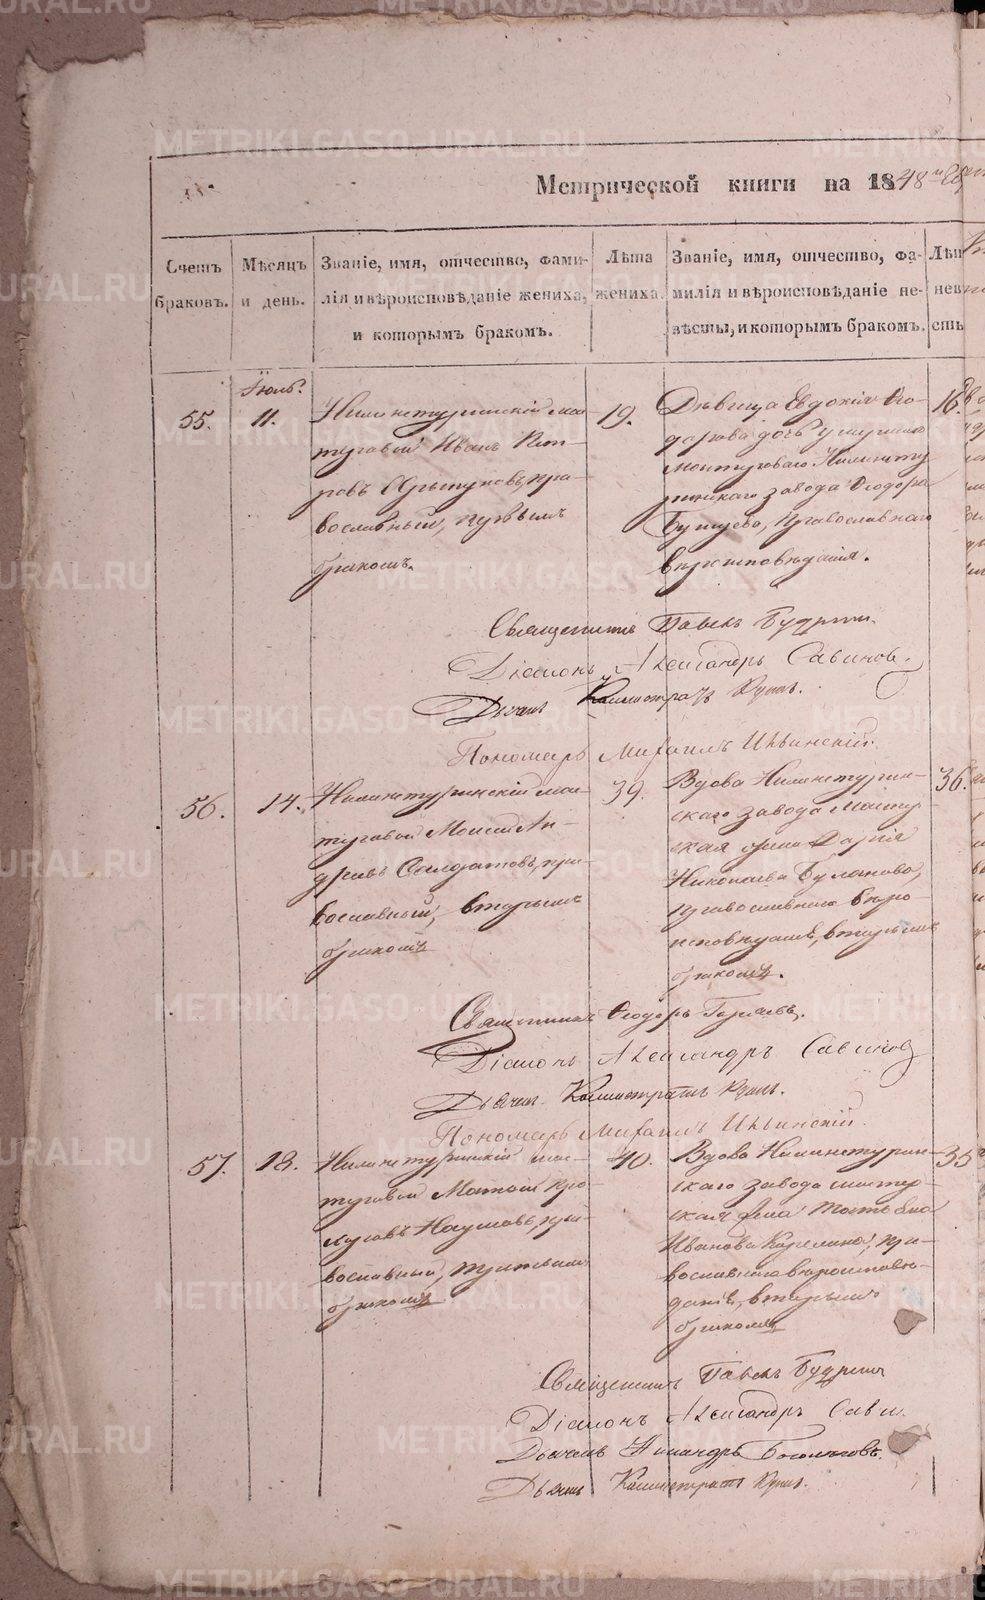 METRIKI.GASO-URAL.RU
Метрической книги на 1848 й
Счетъ браковъ.
Мѣсяцъ и день.
Званіе, имя, отчество, фами-
лія и вѣроисповѣданіе жениха,
и которымъ бракомъ.
Лѣта жениха.
Званіе, имя, отчество, фа-
милія и вѣроисповѣданіе не-
вѣсты, и которымъ бракомъ.
Лѣт
нев
сты
Іюль.
55.
11.
Нижнетуринскій ма-
стеровой Иванъ Пет-
ровъ пра-
вославный, первымъ
бракомъ.
19.
Дѣвица Евдокія Ѳео-
дорова дочь умершаго
мастероваго Нижнету
ринскаго завода Ѳеодора
православнаго
вѣроисповѣданія.
18.
Священникъ Павелъ Будринъ.
Діаконъ Александръ Савинов.
Дьячекъ Каллистратъ
Пономарь Михаилъ Ильинскій.
56.
14.
Нижнетуринскій мас-
теровой Моисей Ан-
дреевъ Солдатовъ, пра-
вославный, вторымъ
бракомъ
39.
Вдова Нижнетурин-
скаго завода мастер
ская жена Дарія
Николаева Буланова,
православнаго вѣро-
исповѣданія, вторымъ
бракомъ.
36.
Священникъ Ѳеодоръ
Діаконъ Александръ Савинов
Дьячекъ Каллистратъ
Пономарь Михаилъ Ильинскій.
57.
18.
Нижнетуринскій мас-
теровой Матвій
Наумовъ, пра-
вославный, третьимъ
бракомъ
40.
Вдова Нижнетурин-
скаго завода мастер-
ская жена Татьяна
Иванова Карелина, пра-
вославнаго вѣроисповѣ-
данія, вторымъ
бракомъ
35
Священникъ Павелъ Будринъ
Діаконъ Александръ Сави.
Дьячекъ Никандръ
Дьячекъ Каллистратъ